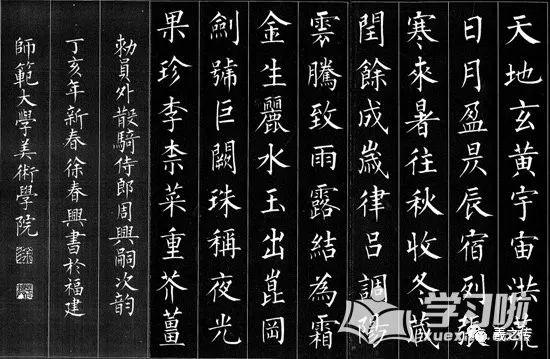 天地玄黃宇宙洪荒
日月盈昃辰宿列張
寒來暑往秋收冬藏
閏餘成歲律呂調陽
雲騰致雨露結為霜
金生麗水玉出崑岡
劍號巨闕珠稱夜光
果珍李柰菜重芥薑
勅員外散騎侍郎周興嗣次韵
丁亥年新春徐春興書於福建
師範大學美術學院
学习啦
羲之传